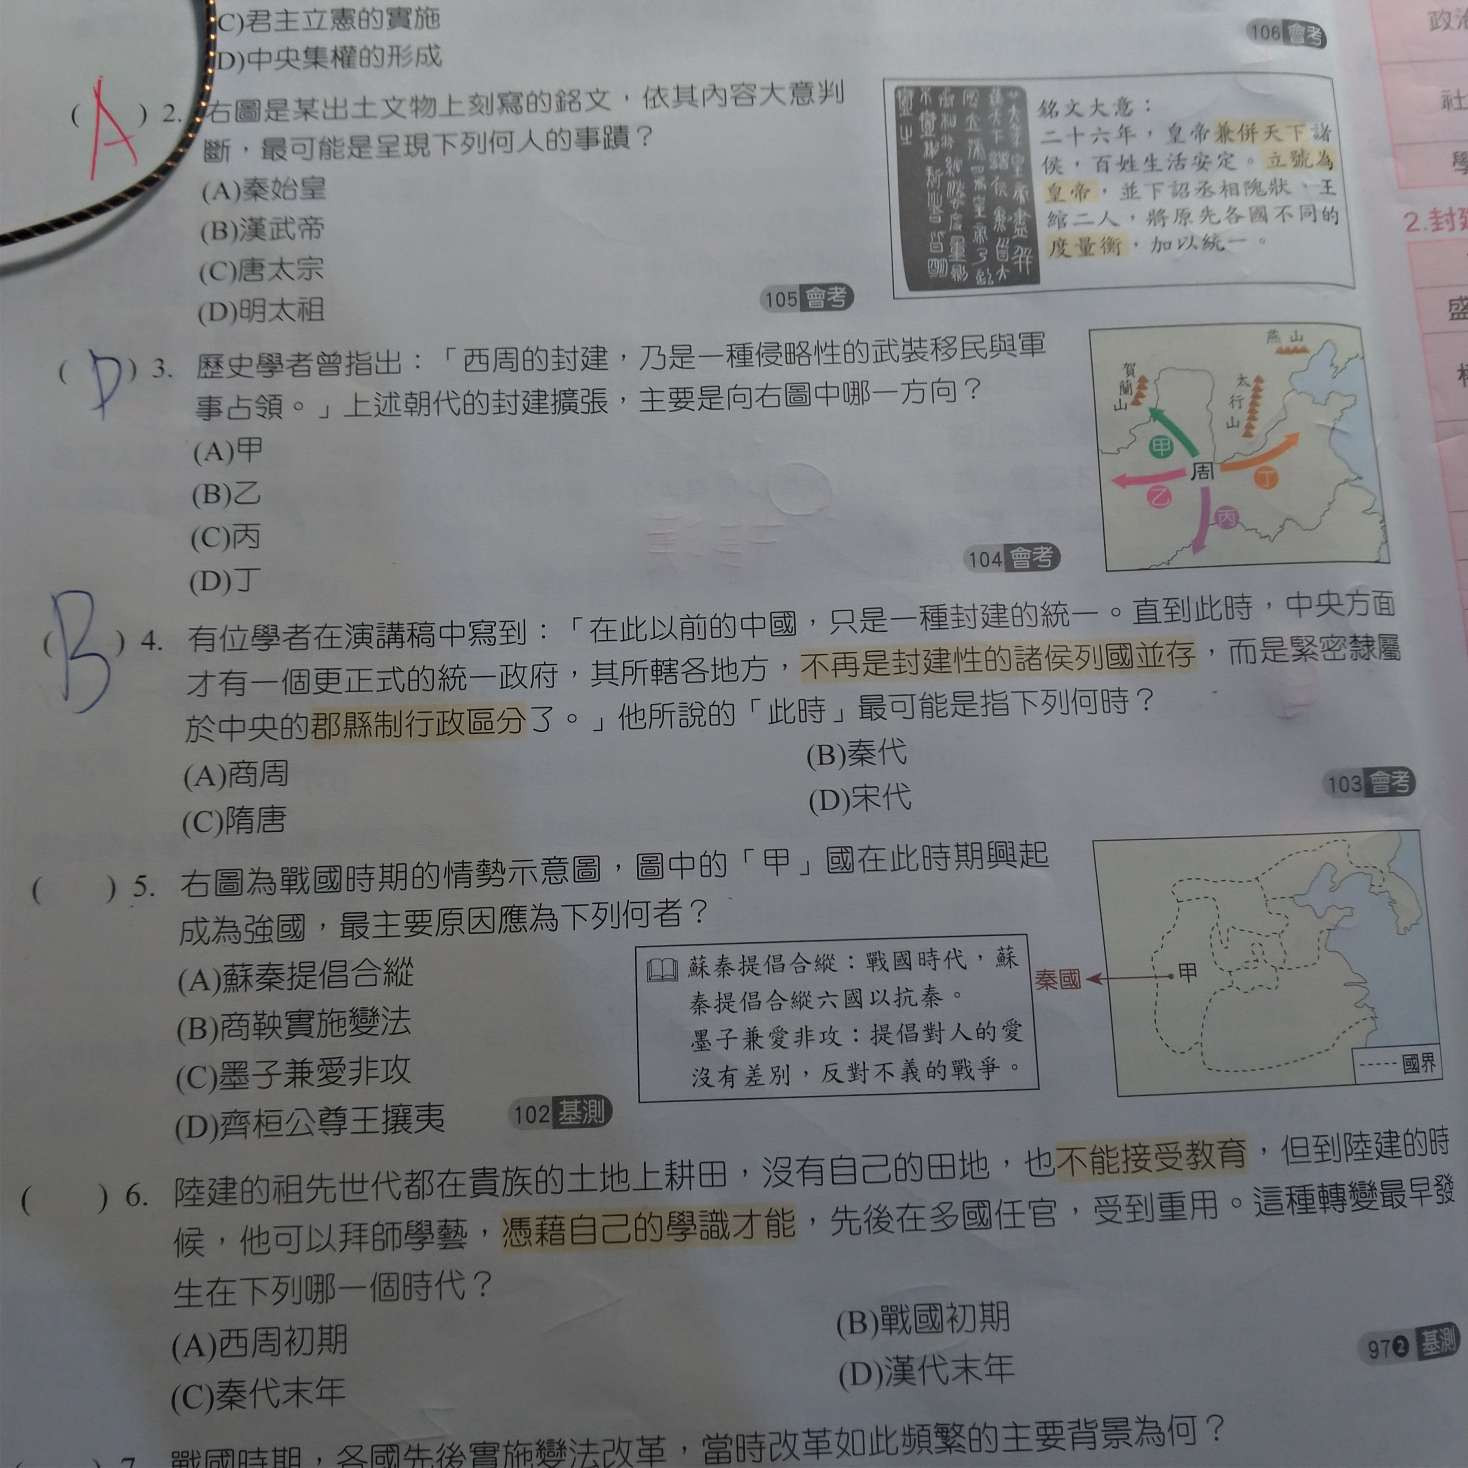 C)君主立憲的實施
D)中央集權的形成
106 會考
(A) 2. 右圖是某出土文物上刻寫的銘文，依其內容大意判
斷，最可能是呈現下列何人的事蹟？
(A)秦始皇
(B)漢武帝
(C)唐太宗
(D)明太祖
105 會考
銘文大意：
二十六年，皇帝兼併天下諸
侯，百姓生活安定。立號為
皇帝，並下詔丞相隗狀、王
綰二人，將原先各國不同的
度量衡，加以統一。
(D) 3. 歷史學者曾指出：「西周的封建，乃是一種侵略性的武裝移民與軍
事占領。」上述朝代的封建擴張，主要是向右圖中哪一方向？
(A)甲
(B)乙
(C)丙
(D)丁
104 會考
燕山
賀蘭山
太行山
甲
周
乙
丁
丙
(B) 4. 有位學者在演講稿中寫到：「在此以前的中國，只是一種封建的統一。直到此時，中央方面
才有一個更正式的統一政府，其所轄各地方，不再是封建性的諸侯列國並存，而是緊密隸屬
於中央的郡縣制行政區分了。」他所說的「此時」最可能是指下列何時？
(A)商周
(B)秦代
(C)隋唐
(D)宋代
103 會考
( ) 5. 右圖為戰國時期的情勢示意圖，圖中的「甲」國在此時期興起
成為強國，最主要原因應為下列何者？
(A)蘇秦提倡合縱
(B)商鞅實施變法
(C)墨子兼愛非攻
(D)齊桓公尊王攘夷
102 基測
蘇秦提倡合縱：戰國時代，蘇
秦提倡合縱六國以抗秦。
墨子兼愛非攻：提倡對人的愛
沒有差別，反對不義的戰爭。
秦國
甲
國界
( ) 6. 陸建的祖先世代都在貴族的土地上耕田，沒有自己的田地，也不能接受教育，但到陸建的時
候，他可以拜師學藝，憑藉自己的學識才能，先後在多國任官，受到重用。這種轉變最早發
生在下列哪一個時代？
(A)西周初期
(B)戰國初期
(C)秦代末年
(D)漢代末年
97❷ 基測
7. 戰國時期，各國先後實施變法改革，當時改革如此頻繁的主要背景為何？
政治
社
學
2.封建
盛